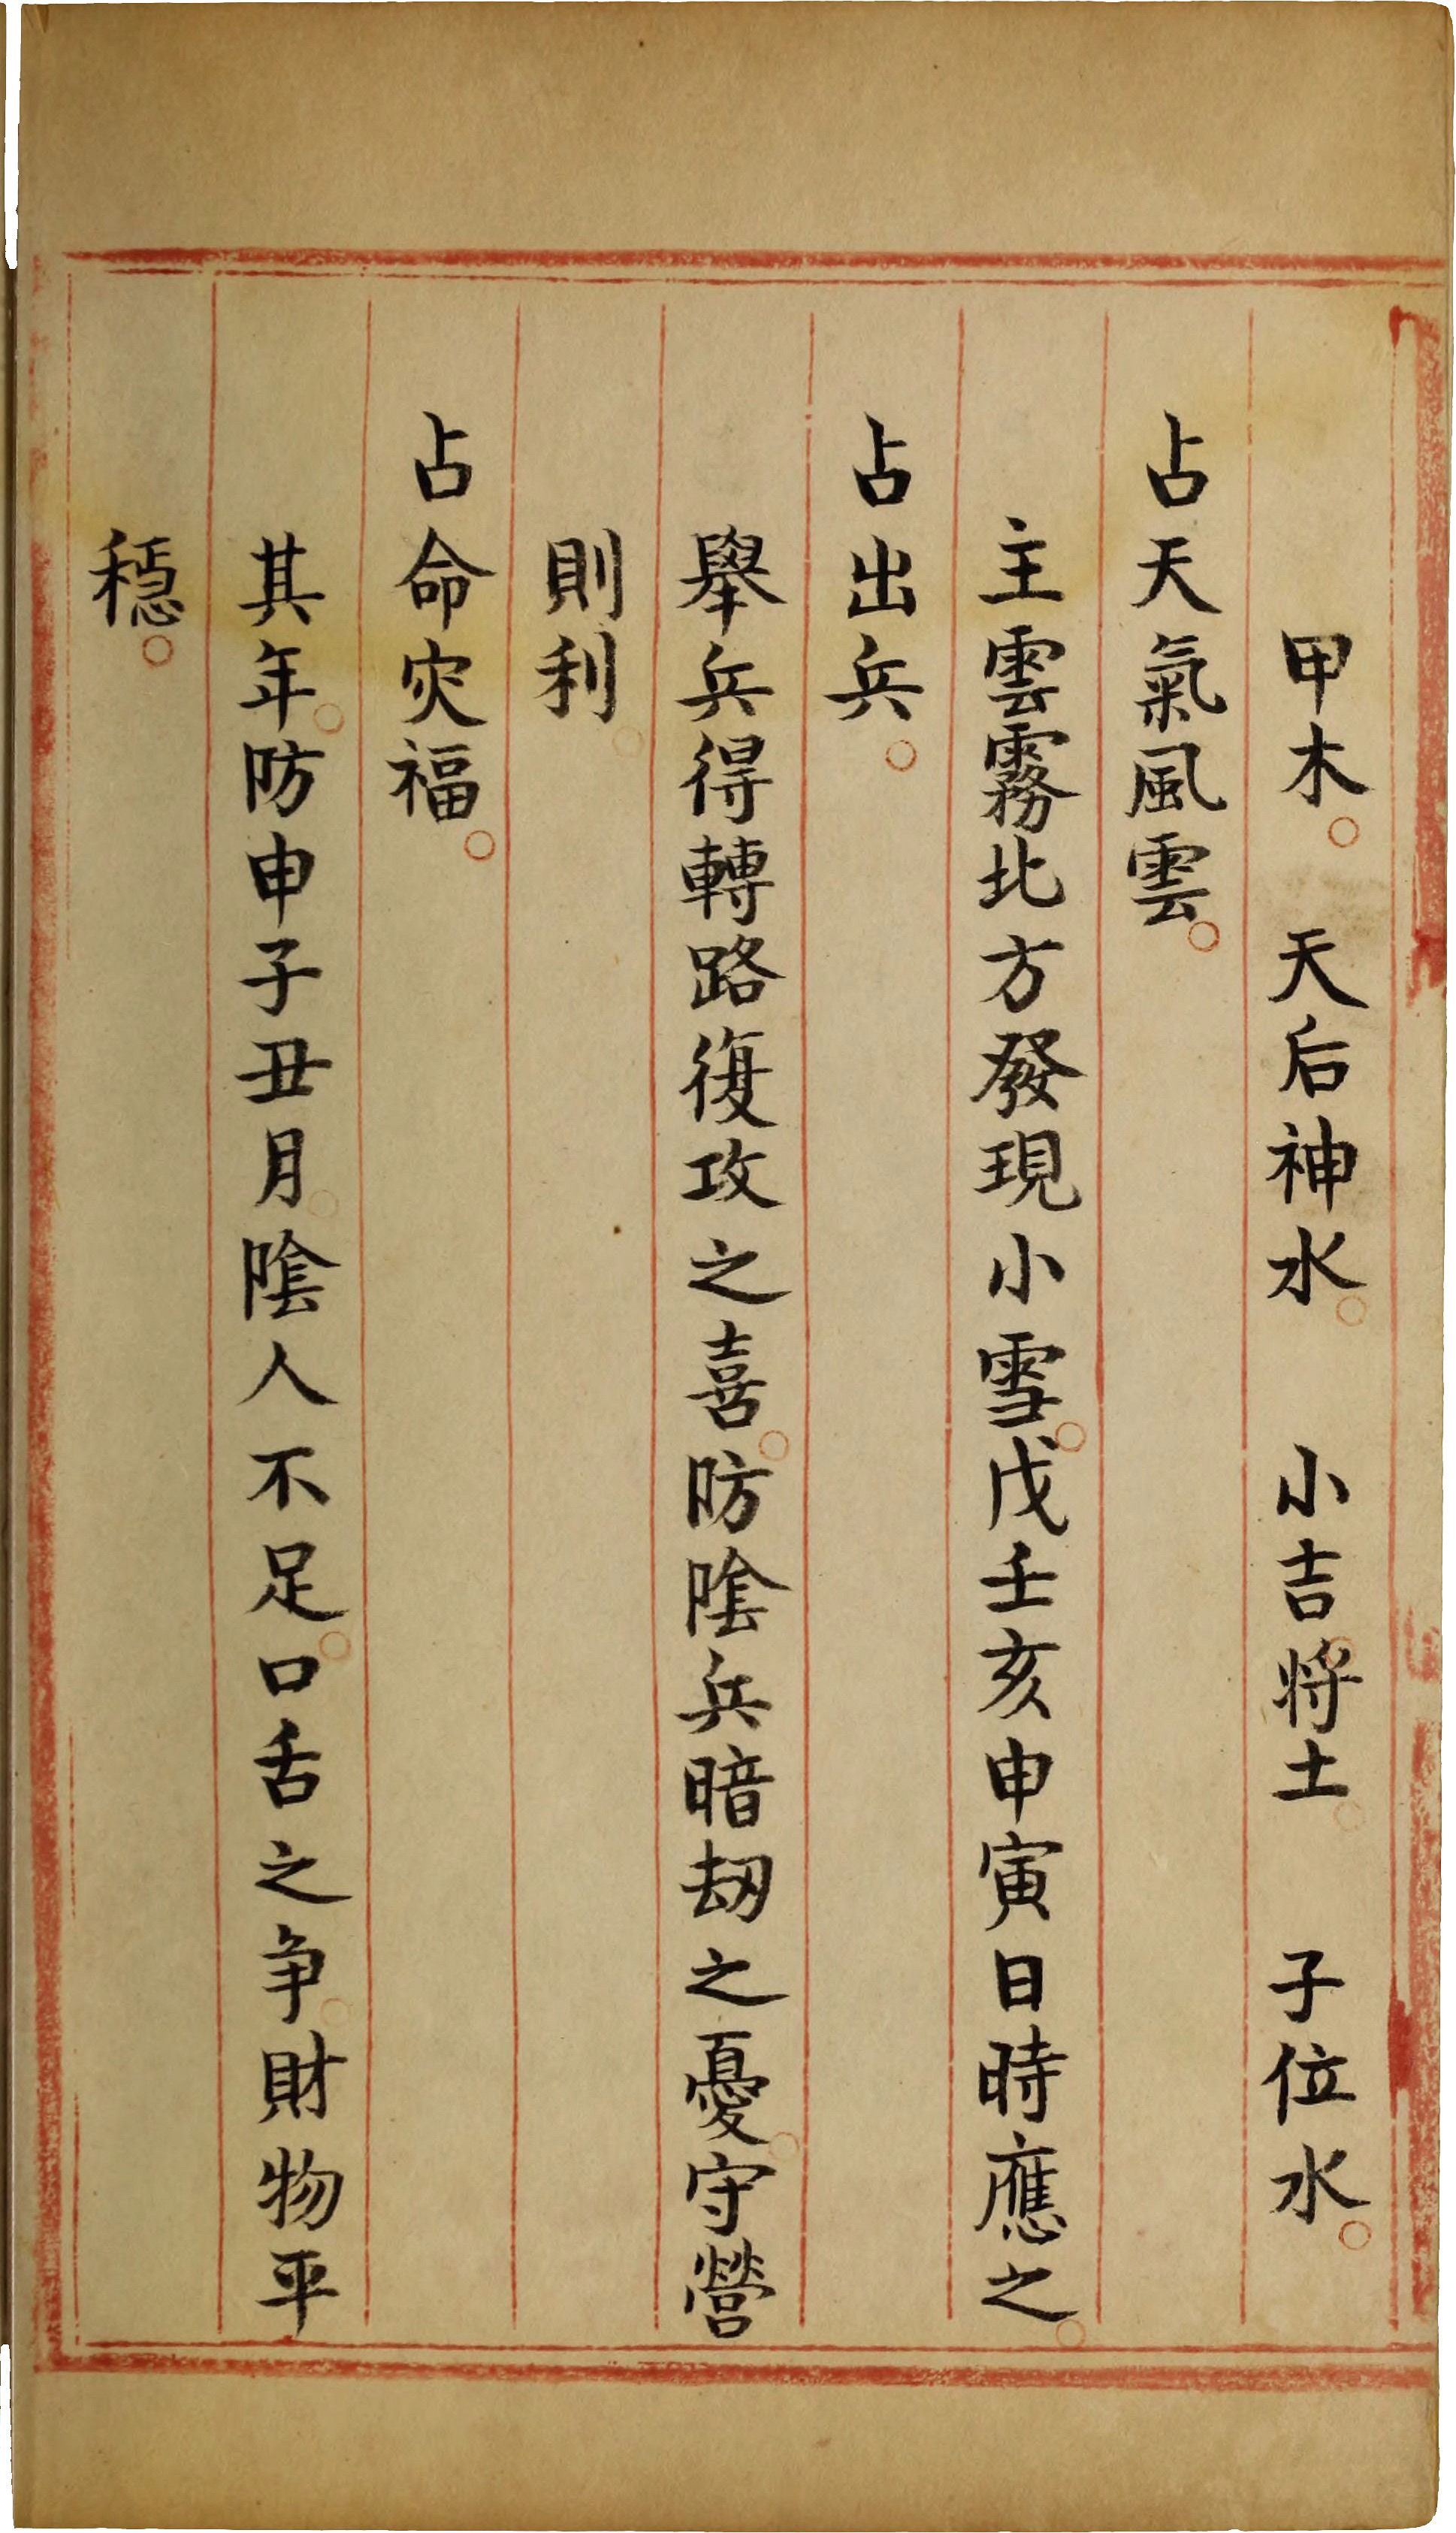 甲木。　天后神水。　小吉将土。　子位水。
占天氣風雲。
主雲霧北方發現小雪。戊壬亥申寅日時應之。
占出兵。
舉兵得轉路復攻之喜。防陰兵暗刼之憂。守營
則利。
占命灾福。
其年。防申子丑月。陰人不足。口舌之争。財物平
穩。